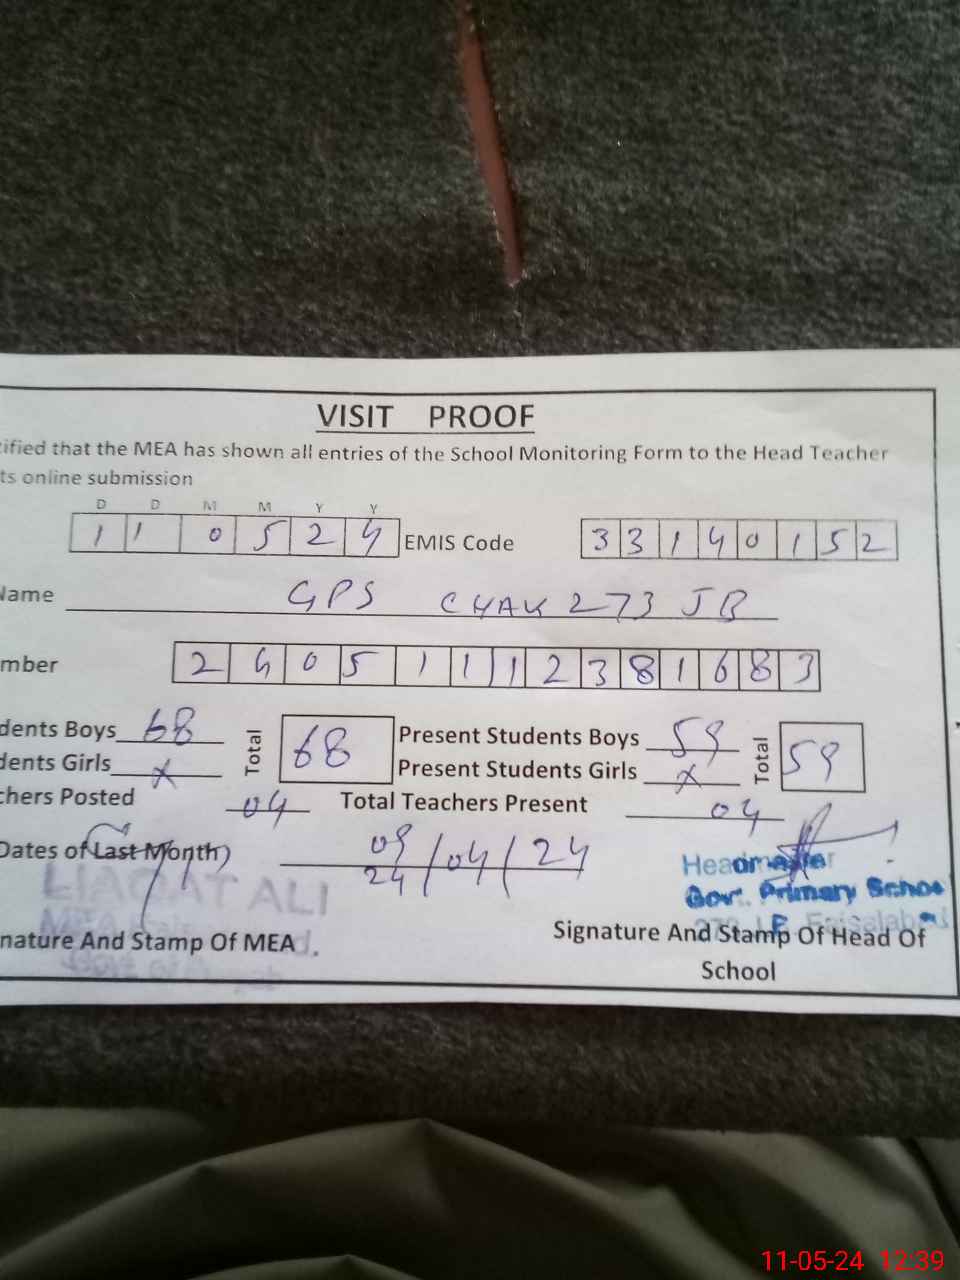 VISIT PROOF
ified that the MEA has shown all entries of the School Monitoring Form to the Head Teacher
ts online submission
D D M M Y Y
1 1 0 5 2 4 EMIS Code 3 3 1 4 0 1 5 2
Name GPS CHAK 273 JB
mber 2 4 0 5 1 1 1 2 3 8 1 6 8 3
dents Boys 68 Total 68 Present Students Boys 59 Total 59
dents Girls x Present Students Girls x
chers Posted 04 Total Teachers Present 04
Dates of Last Month 09/04/24
24
Headmaster
LIAQAT ALI
Govt. Primary School
Faisalabad
nature And Stamp Of MEA
Signature And Stamp Of Head Of
School
11-05-24 12:39